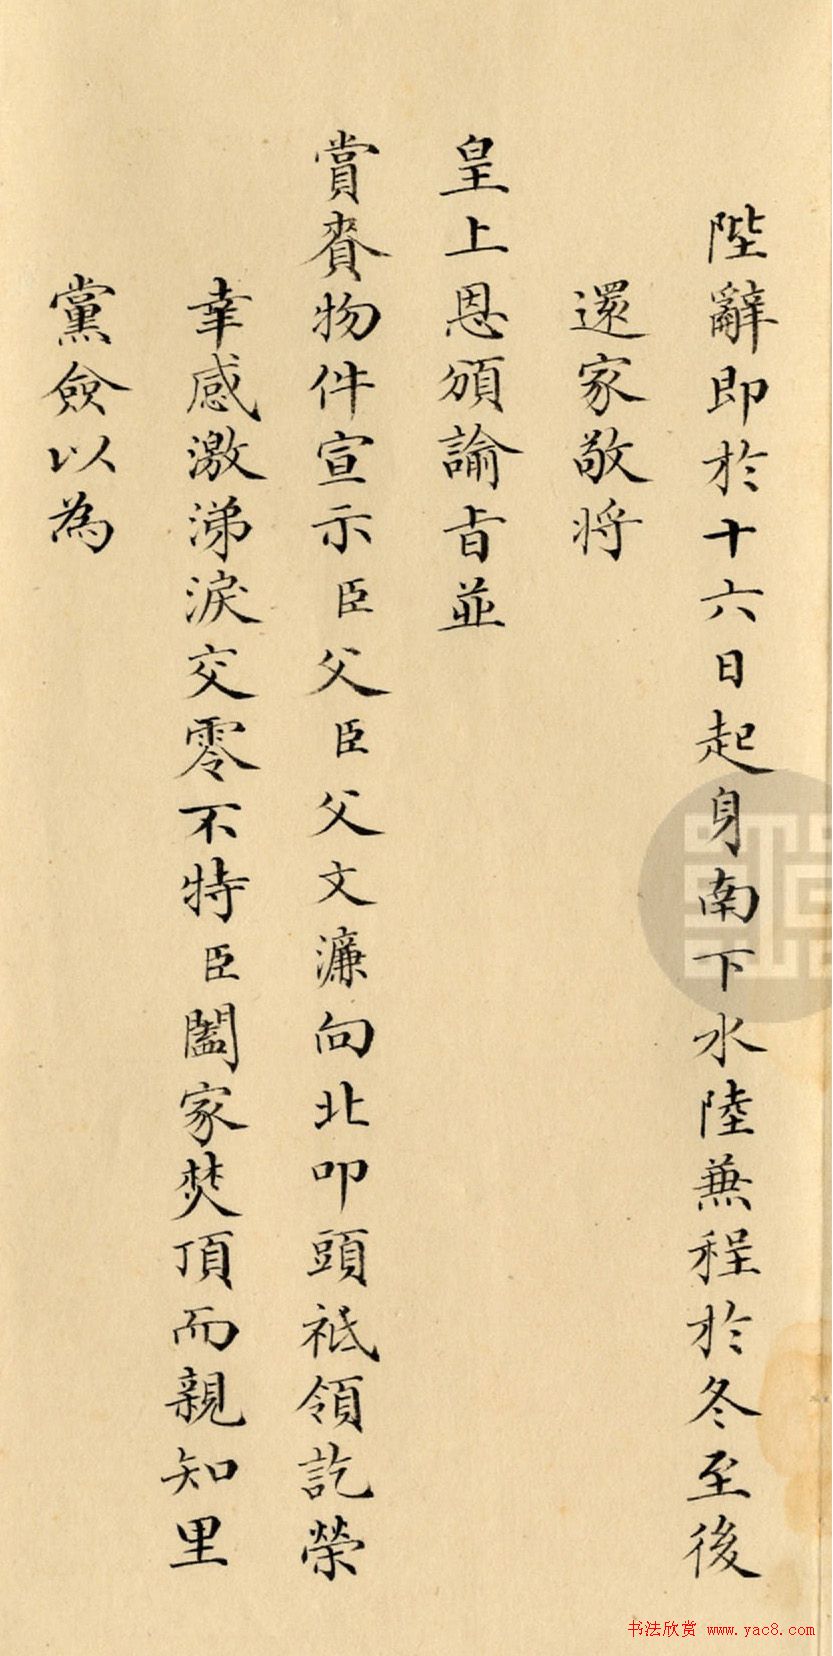 陛辭即於十六日起身南下水陸兼程於冬至後
還家敬將
皇上恩頒諭旨並
賞賚物件宣示臣父臣父文濂向北叩頭祗領訖榮
幸感激涕淚交零不特臣闔家焚頂而親知里
黨僉以為
书法欣赏 www.yac8.com